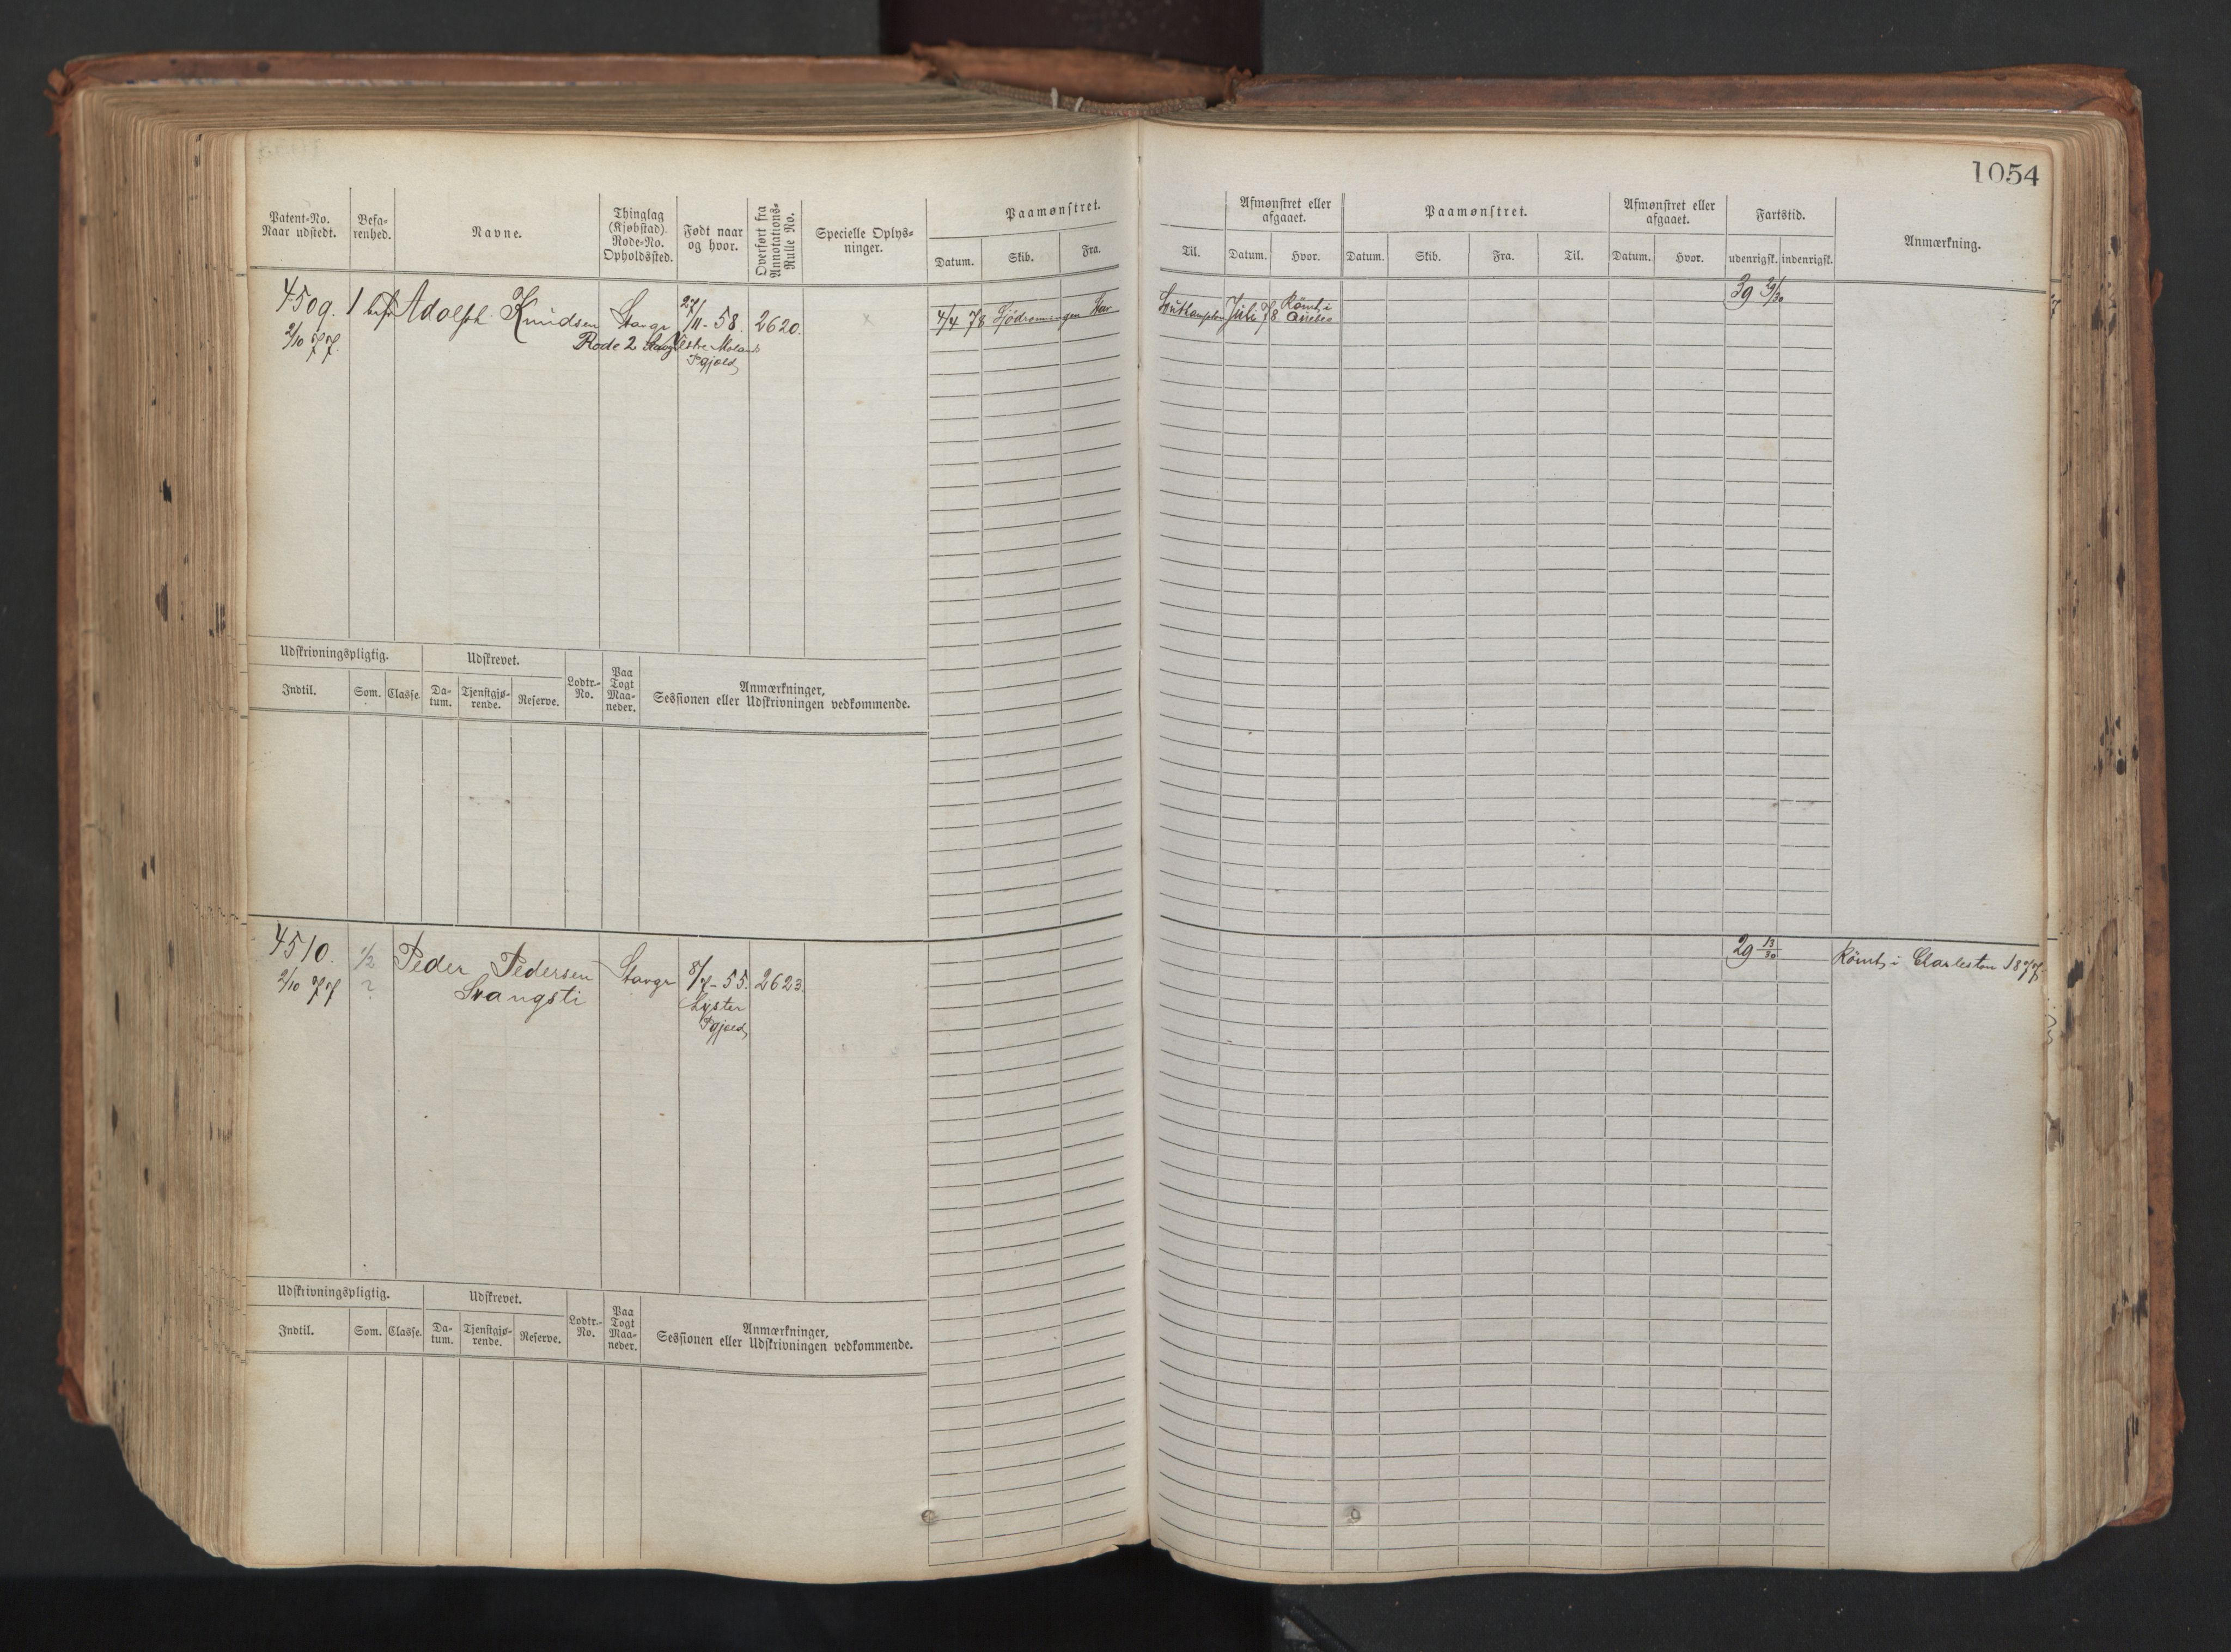 1054
Patent-No. Naar udstedt.
Befarenhed.
Navne.
Thinglag (Kjøbstad). Rode-No. Opholdssted.
Født naar og hvor.
Overført fra Annotations-Rulle No.
Specielle Oplysninger.
Paamønstret.
Datum. Skib. Fra. Til.
Afmønstret eller afgaaet.
Datum. Hvor.
Paamønstret.
Datum. Skib. Fra. Til.
Afmønstret eller afgaaet.
Datum. Hvor.
Fartstid.
udenrigsk. indenrigsk.
Anmærkning.
4509. 1 Adolph Knudsen Stavgr 27/11-58. 2620.
4/4 78 Stav Juli 78 Römt i
39
2/10 77. Rode 2
Pgjæld
Udskrivningspligtig. Udskrevet.
Indtil. Som. Classe. Datum. Tjenstgjørende. Reserve. Lodtr.-No. Paa Togt Maaneder.
Anmærkninger,
Sessionen eller Udskrivningen vedkommende.
4510. 1/2 Peder Pedersen Stavgr 8/7-55. 2623.
29 13/30 Römt i Charleston 1877.
2/10 77 ? Svangsti
Lyster
Pgjæld
Udskrivningspligtig. Udskrevet.
Indtil. Som. Classe. Datum. Tjenstgjørende. Reserve. Lodtr.-No. Paa Togt Maaneder.
Anmærkninger,
Sessionen eller Udskrivningen vedkommende.